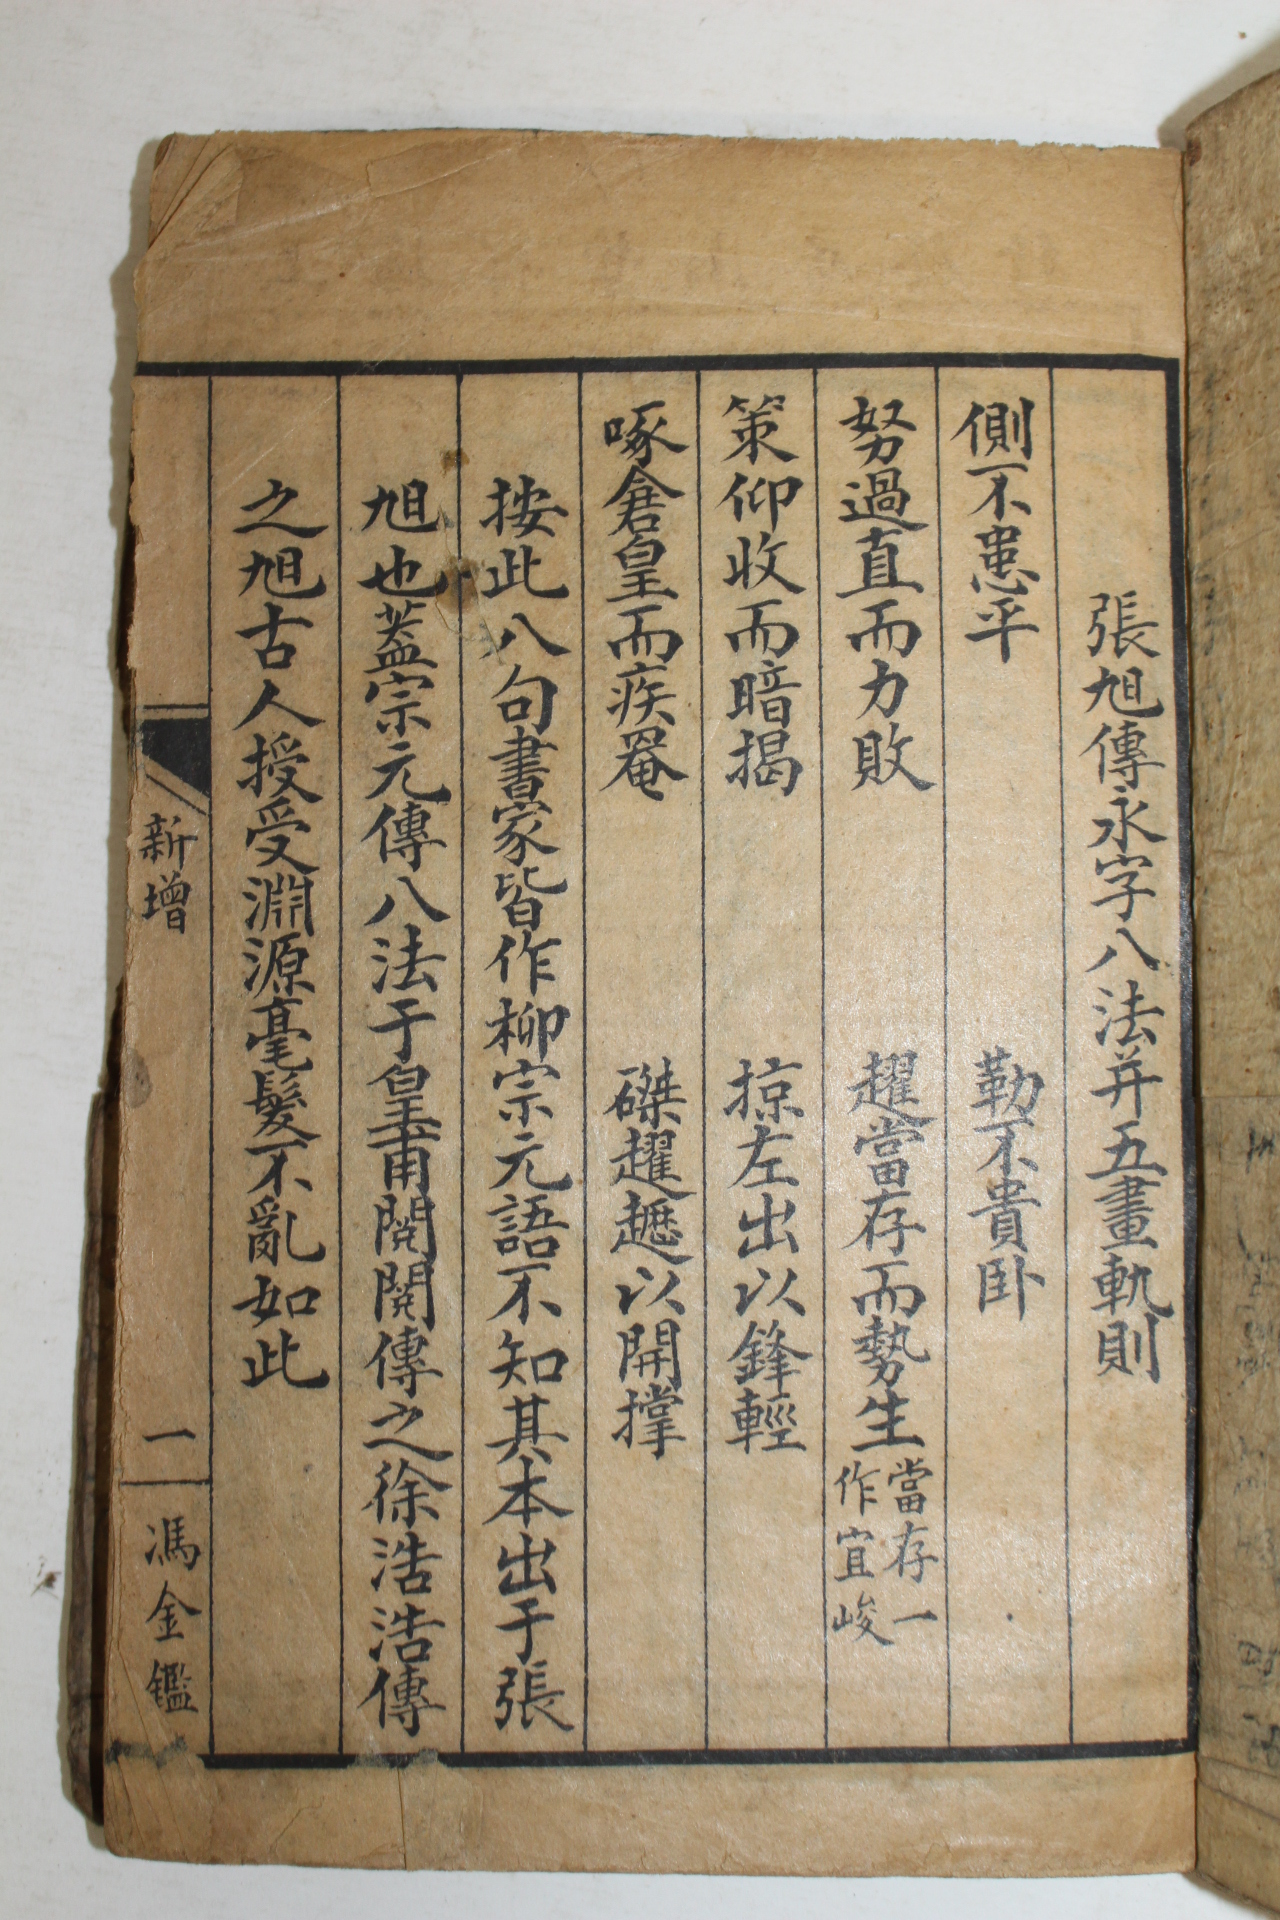 張旭傳永字八法并五畫軌則
側不患平　勒不貴卧
努過直而力敗　趯當存而勢生當存一作宜峻
策仰收而暗揭　掠左出以鋒輕
啄倉皇而疾罨　磔趯趲以開撑
按此八句書家皆作柳宗元語不知其本出于張
旭也蓋宗元傳八法于皇甫閱閱傳之徐浩浩傳
之旭古人授受淵源毫髮不亂如此
新增
一
馮金鑑